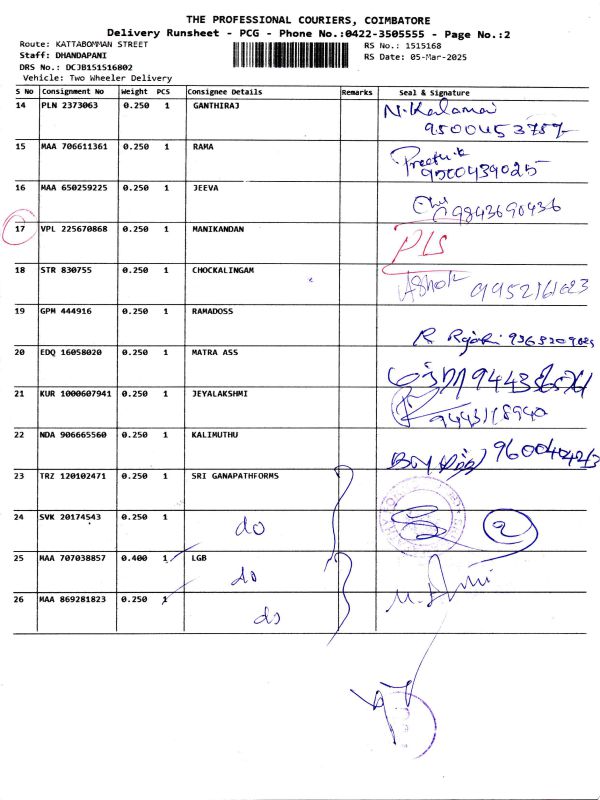 THE PROFESSIONAL COURIERS, COIMBATORE
Delivery Runsheet - PCG - Phone No.:0422-3505555 - Page No.:2
Route: KATTABOMMAN STREET
RS No.: 1515168
Staff: DHANDAPANI
RS Date: 05-Mar-2025
DRS No.: DCJB151516802
Vehicle: Two Wheeler Delivery
S No Consignment No Weight PCS Consignee Details Remarks Seal & Signature
14 PLN 2373063 0.250 1 GANTHIRAJ N. Kalamai
9500453757
15 MAA 706611361 0.250 1 RAMA Preethik
9500439025
16 MAA 650259225 0.250 1 JEEVA
9843690436
17 VPL 225670868 0.250 1 MANIKANDAN PLS
18 STR 830755 0.250 1 CHOCKALINGAM Ashok 9952161623
19 GPM 444916 0.250 1 RAMADOSS
20 EDQ 16058020 0.250 1 MATRA ASS
21 KUR 1000607941 0.250 1 JEYALAKSHMI
9443118940
22 NDA 906665560 0.250 1 KALIMUTHU
23 TRZ 120102471 0.250 1 SRI GANAPATHFORMS
24 SVK 20174543 0.250 1 do 2
25 MAA 707038857 0.400 1 LGB
do
26 MAA 869281823 0.250 1
do